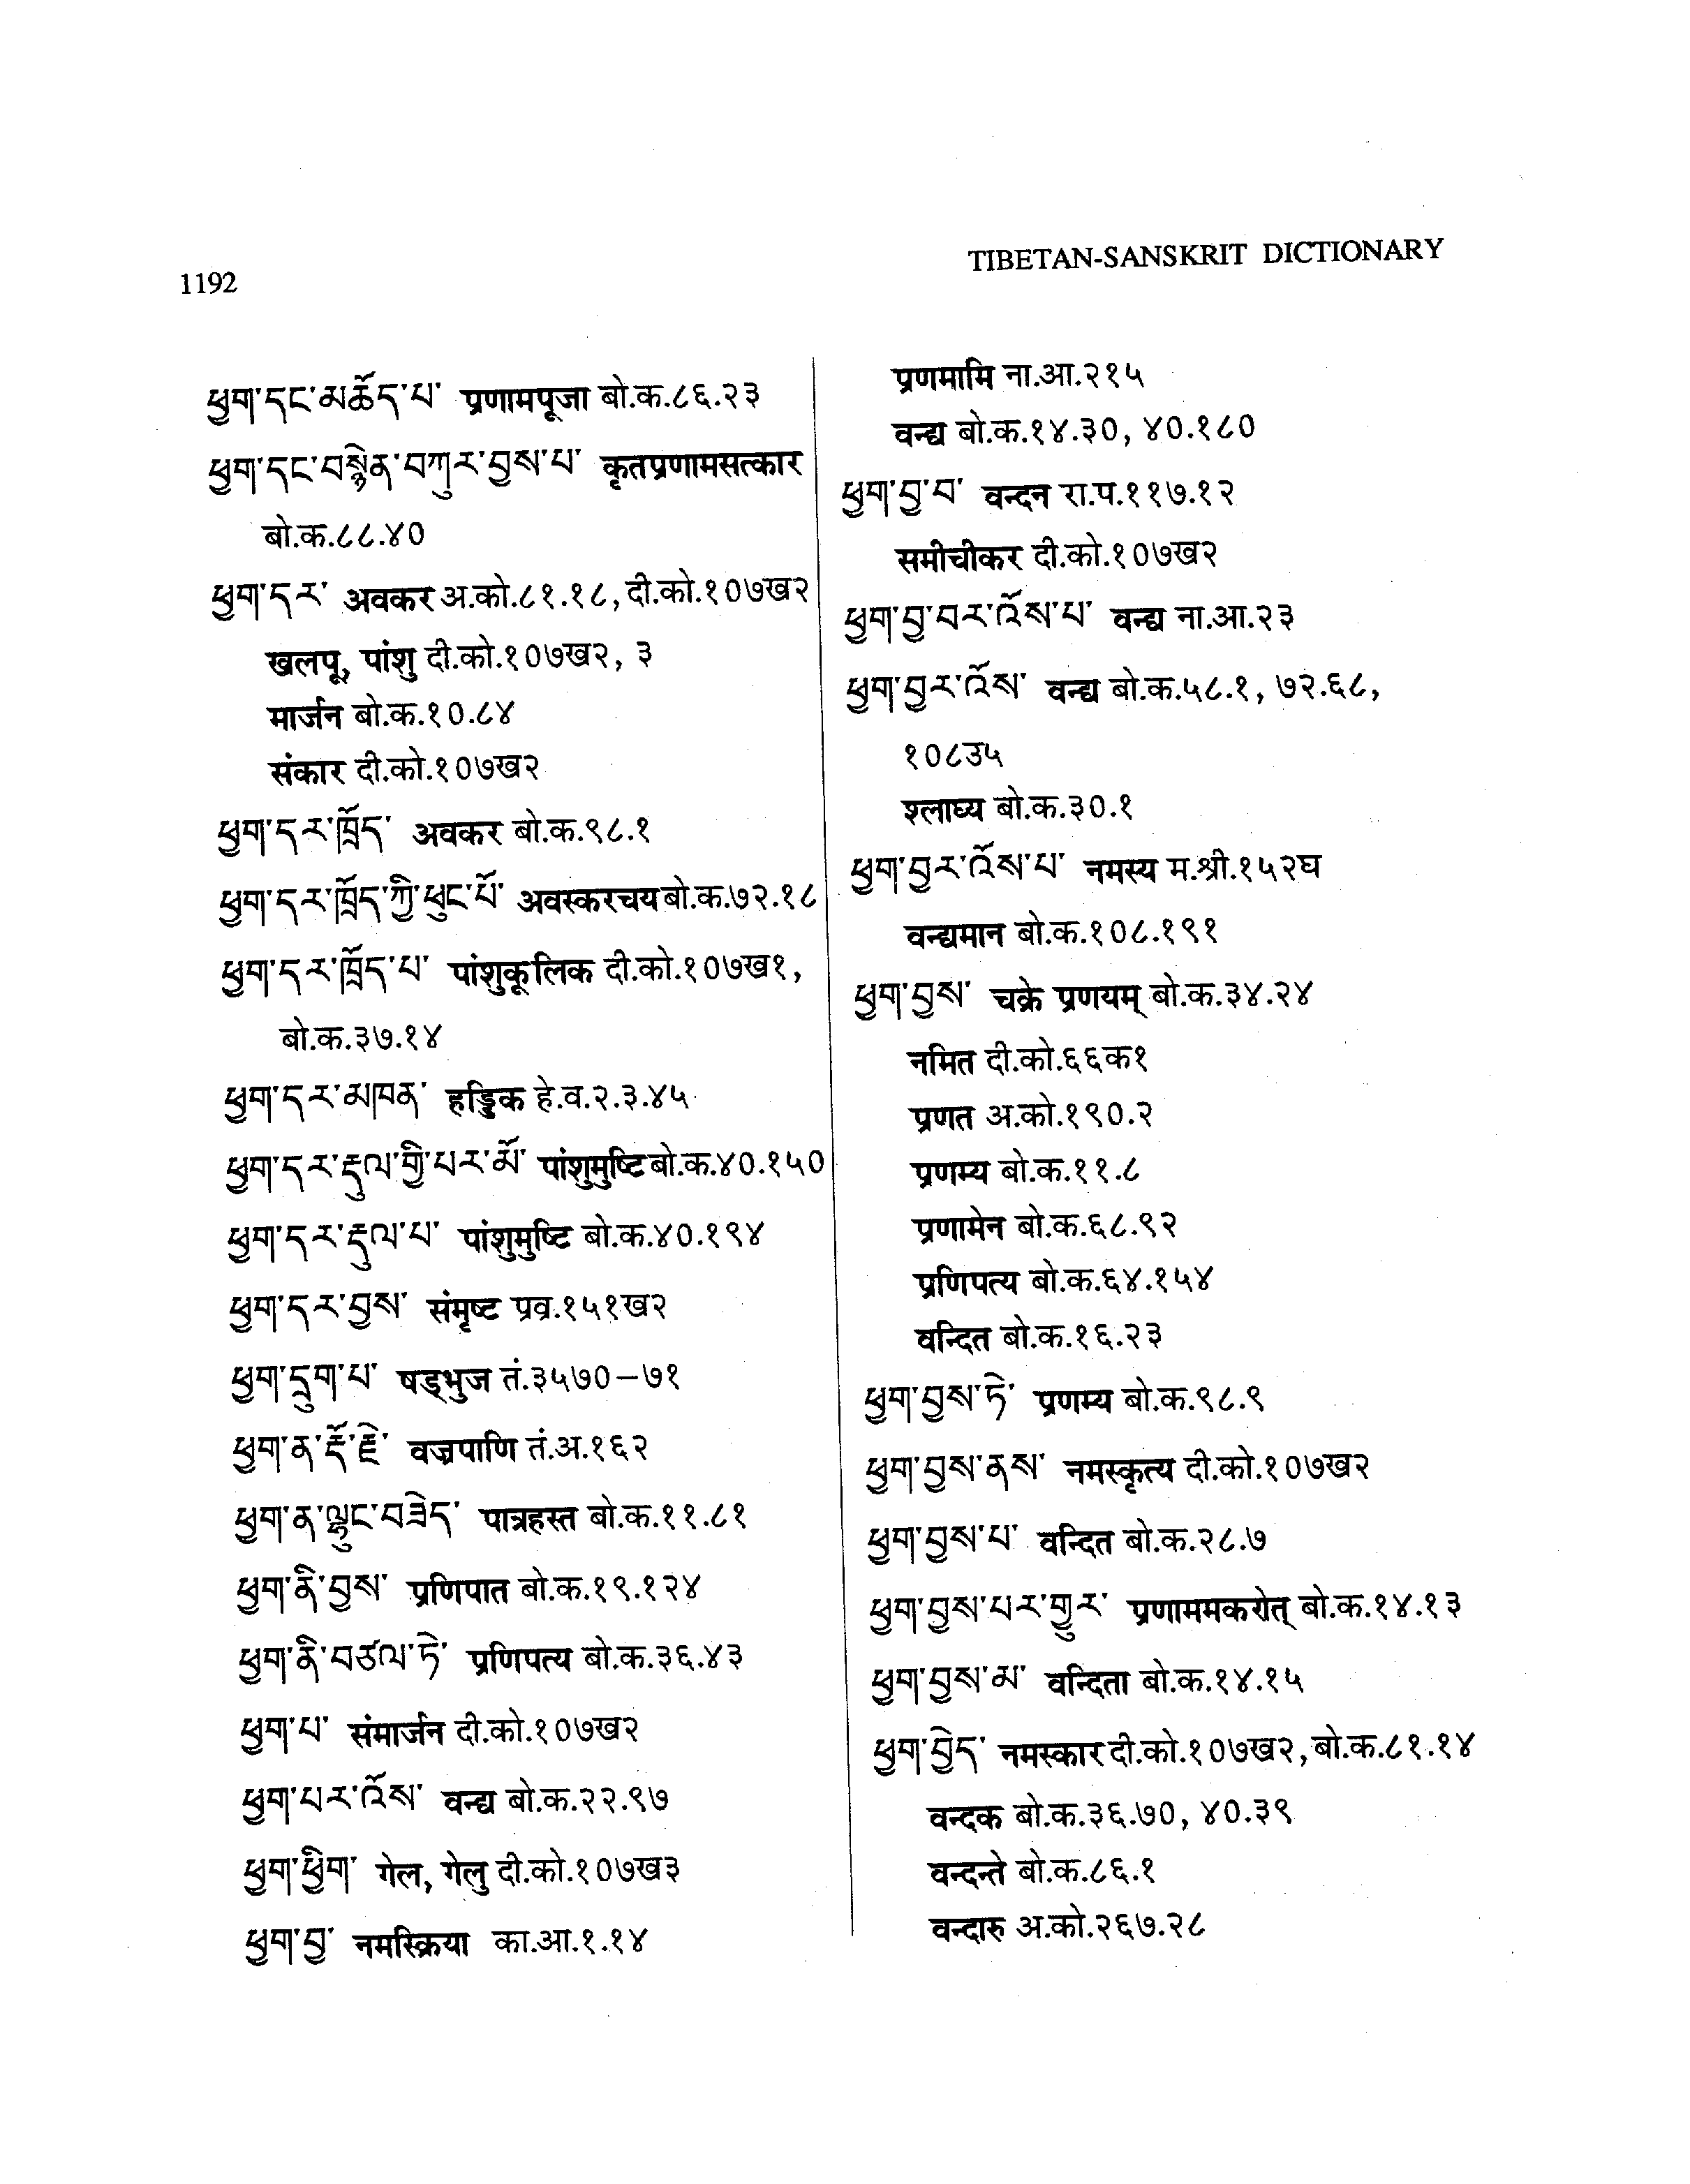 1192
TIBETAN-SANSKRIT DICTIONARY
ཕྱག་དང་མཆོད་པ་ प्रणामपूजा बो.क.८६.२३
ཕྱག་དང་བསྙེན་བཀུར་བྱས་པ་ कृतप्रणामसत्कार
बो.क.८८.४०
ཕྱག་དར་ अवकर अ.को.८१.१८, दी.को.१०७ख२
खलपू, पांशु दी.को.१०७ख२, ३
मार्जन बो.क.१०.८४
संकार दी.को.१०७ख२
ཕྱག་དར་ཁྲོད་ अवकर बो.क.९८.१
ཕྱག་དར་ཁྲོད་ཀྱི་ཕུང་པོ་ अवस्करचय बो.क.७२.१८
ཕྱག་དར་ཁྲོད་པ་ पांशुकूलिक दी.को.१०७ख१,
बो.क.३७.१४
ཕྱག་དར་མཁན་ हड्डिक हे.व.२.३.४५
ཕྱག་དར་རྡུལ་གྱི་པར་མོ་ पांशुमुष्टि बो.क.४०.१५०
ཕྱག་དར་རྡུལ་པ་ पांशुमुष्टि बो.क.४०.१९४
ཕྱག་དར་བྱས་ संमृष्ट प्रव्र.१५१ख२
ཕྱག་དྲུག་པ་ षड्भुज तं.३५७०-७१
ཕྱག་ན་རྡོ་རྗེ་ वज्रपाणि तं.अ.१६२
ཕྱག་ན་ལྷུང་བཟེད་ पात्रहस्त बो.क.११.८१
ཕྱག་ནི་བྱས་ प्रणिपात बो.क.१९.१२४
ཕྱག་ནི་བཙལ་ཏེ་ प्रणिपत्य बो.क.३६.४३
ཕྱག་པ་ संमार्जन दी.को.१०७ख२
ཕྱག་པར་འོས་ वन्द्य बो.क.२२.९७
ཕྱག་ཕྱིག་ गेल, गेलु दी.को.१०७ख३
ཕྱག་བྱ་ नमस्क्रिया का.आ.१.१४
प्रणमामि ना.आ.२१५
वन्द्य बो.क.१४.३०, ४०.१८०
ཕྱག་བྱ་བ་ वन्दन रा.प.११७.१२
समीचीकर दी.को.१०७ख२
ཕྱག་བྱ་བར་འོས་པ་ वन्द्य ना.आ.२३
ཕྱག་བྱར་འོས་ वन्द्य बो.क.५८.१, ७२.६८,
१०८उ५
श्लाघ्य बो.क.३०.१
ཕྱག་བྱར་འོས་པ་ नमस्य म.श्री.१५२घ
वन्द्यमान बो.क.१०८.१९१
ཕྱག་བྱས་ चक्रे प्रणयम् बो.क.३४.२४
नमित दी.को.६६क१
प्रणत अ.को.१९०.२
प्रणम्य बो.क.११.८
प्रणामेन बो.क.६८.९२
प्रणिपत्य बो.क.६४.१५४
वन्दित बो.क.१६.२३
ཕྱག་བྱས་ཏེ་ प्रणम्य बो.क.९८.९
ཕྱག་བྱས་ནས་ नमस्कृत्य दी.को.१०७ख२
ཕྱག་བྱས་པ་ वन्दित बो.क.२८.७
ཕྱག་བྱས་པར་གྱུར་ प्रणाममकरोत् बो.क.१४.१३
ཕྱག་བྱས་མ་ वन्दिता बो.क.१४.१५
ཕྱག་བྱེད་ नमस्कार दी.को.१०७ख२, बो.क.८१.१४
वन्दक बो.क.३६.७०, ४०.३९
वन्दन्ते बो.क.८६.१
वन्दारु अ.को.२६७.२८